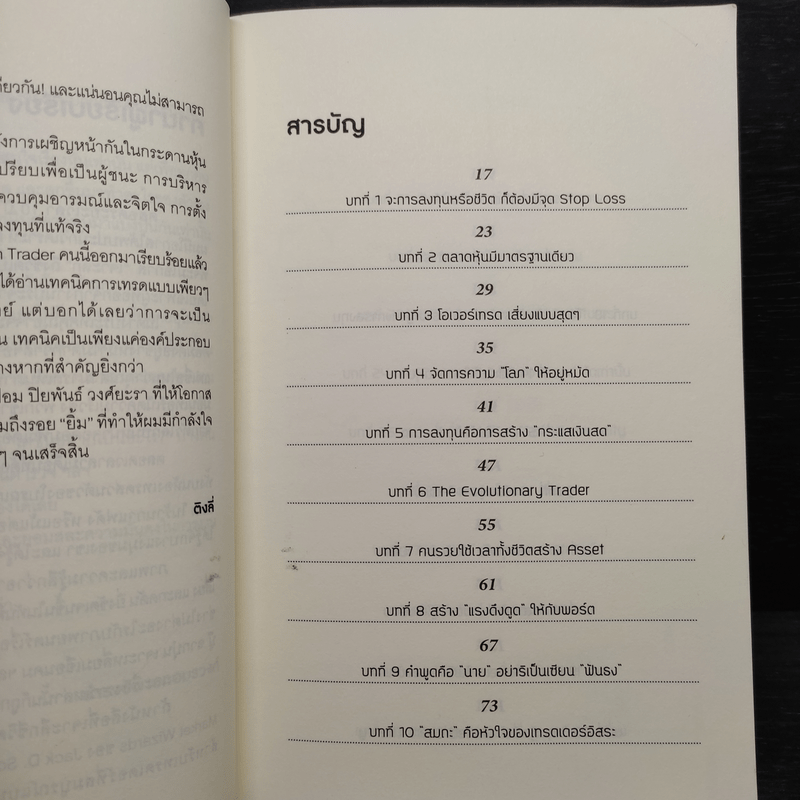 ดียวกัน! และแน่นอนคุณไม่สามารถ
งการเผชิญหน้ากันในกระดานหุ้น
ปรียบเพื่อเป็นผู้ชนะ การบริหาร
ควบคุมอารมณ์และจิตใจ การตั้ง
งทุนที่แท้จริง
Trader คนนี้ออกมาเรียบร้อยแล้ว
ได้อ่านเทคนิคการเทรดแบบเพียวๆ
ย์ แต่บอกได้เลยว่าการจะเป็น
น เทคนิคเป็นเพียงแค่องค์ประกอบ
างหากที่สำคัญยิ่งกว่า
อม ปิยพันธ์ วงศ์ยะรา ที่ให้โอกาส
มถึงรอย "ยิ้ม" ที่ทำให้ผมมีกำลังใจ
ๆ จนเสร็จสิ้น
ติงลี่
สารบัญ
17
บทที่ 1 จะการลงทุนหรือชีวิต ก็ต้องมีจุด Stop Loss
23
บทที่ 2 ตลาดหุ้นมีมาตรฐานเดียว
29
บทที่ 3 โอเวอร์เทรด เสี่ยงแบบสุดๆ
35
บทที่ 4 จัดการความ "โลภ" ให้อยู่หมัด
41
บทที่ 5 การลงทุนคือการสร้าง "กระแสเงินสด"
47
บทที่ 6 The Evolutionary Trader
55
บทที่ 7 คนรวยใช้เวลาทั้งชีวิตสร้าง Asset
61
บทที่ 8 สร้าง "แรงดึงดูด" ให้กับพอร์ต
67
บทที่ 9 คำพูดคือ "นาย" อย่าริเป็นเซียน "ฟันธง"
73
บทที่ 10 "สมถะ" คือหัวใจของเทรดเดอร์อิสระ